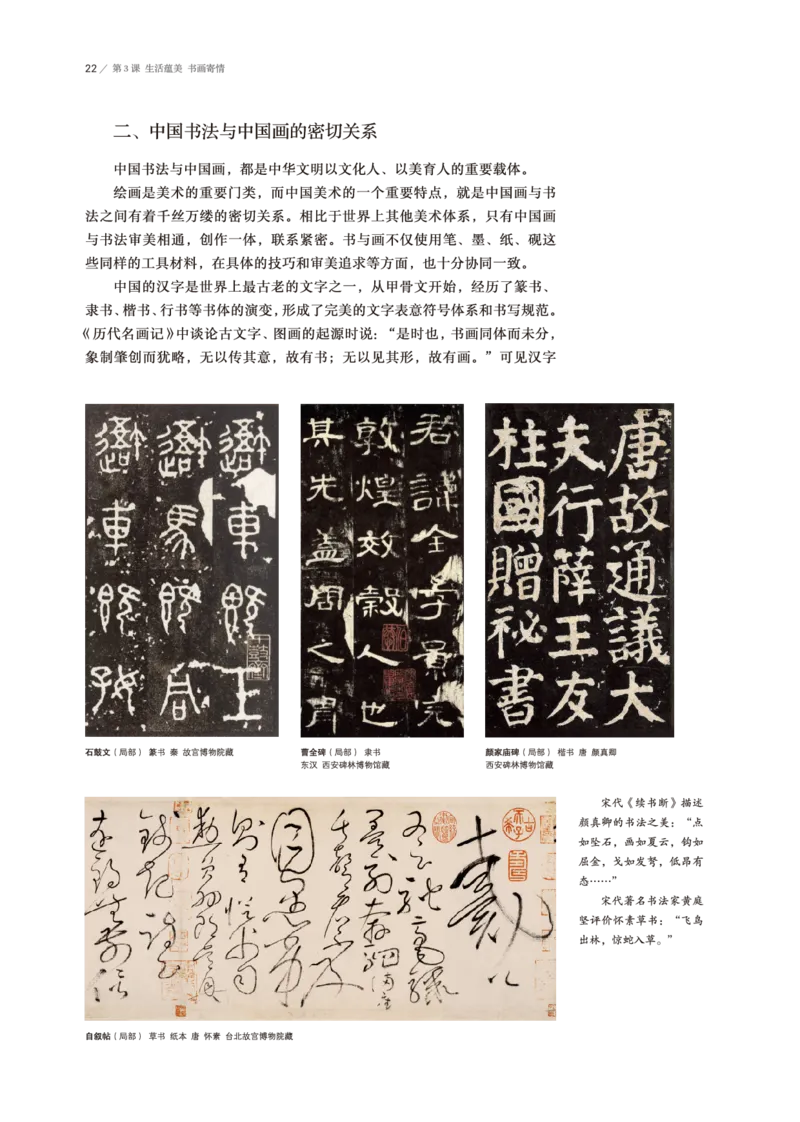 22 / 第3课 生活蕴美 书画寄情
二、中国书法与中国画的密切关系
中国书法与中国画，都是中华文明以文化人、以美育人的重要载体。
绘画是美术的重要门类，而中国美术的一个重要特点，就是中国画与书
法之间有着千丝万缕的密切关系。相比于世界上其他美术体系，只有中国画
与书法审美相通，创作一体，联系紧密。书与画不仅使用笔、墨、纸、砚这
些同样的工具材料，在具体的技巧和审美追求等方面，也十分协同一致。
中国的汉字是世界上最古老的文字之一，从甲骨文开始，经历了篆书、
隶书、楷书、行书等书体的演变，形成了完美的文字表意符号体系和书写规范。
《历代名画记》中谈论古文字、图画的起源时说：“是时也，书画同体而未分，
象制肇创而犹略，无以传其意，故有书；无以见其形，故有画。”可见汉字
車既工
馬既同
車既好
石鼓文（局部） 篆书 秦 故宫博物院藏
君諱全字景完
敦煌效穀人也
其先蓋周之胄
曹全碑（局部） 隶书
东汉 西安碑林博物馆藏
唐故通議大
夫行薛王友
柱國贈祕書
颜家庙碑（局部） 楷书 唐 颜真卿
西安碑林博物馆藏
戴公
又云馳毫驟
墨列奔駟滿座
失聲看不及
目愚劣
則有從父司
勳員外郎吳興
錢起詩云
遠鶴無前侶
自叙帖（局部） 草书 纸本 唐 怀素 台北故宫博物院藏
宋代《续书断》描述
颜真卿的书法之美：“点
如坠石，画如夏云，钩如
屈金，戈如发弩，低昂有
态……”
宋代著名书法家黄庭
坚评价怀素草书：“飞鸟
出林，惊蛇入草。”